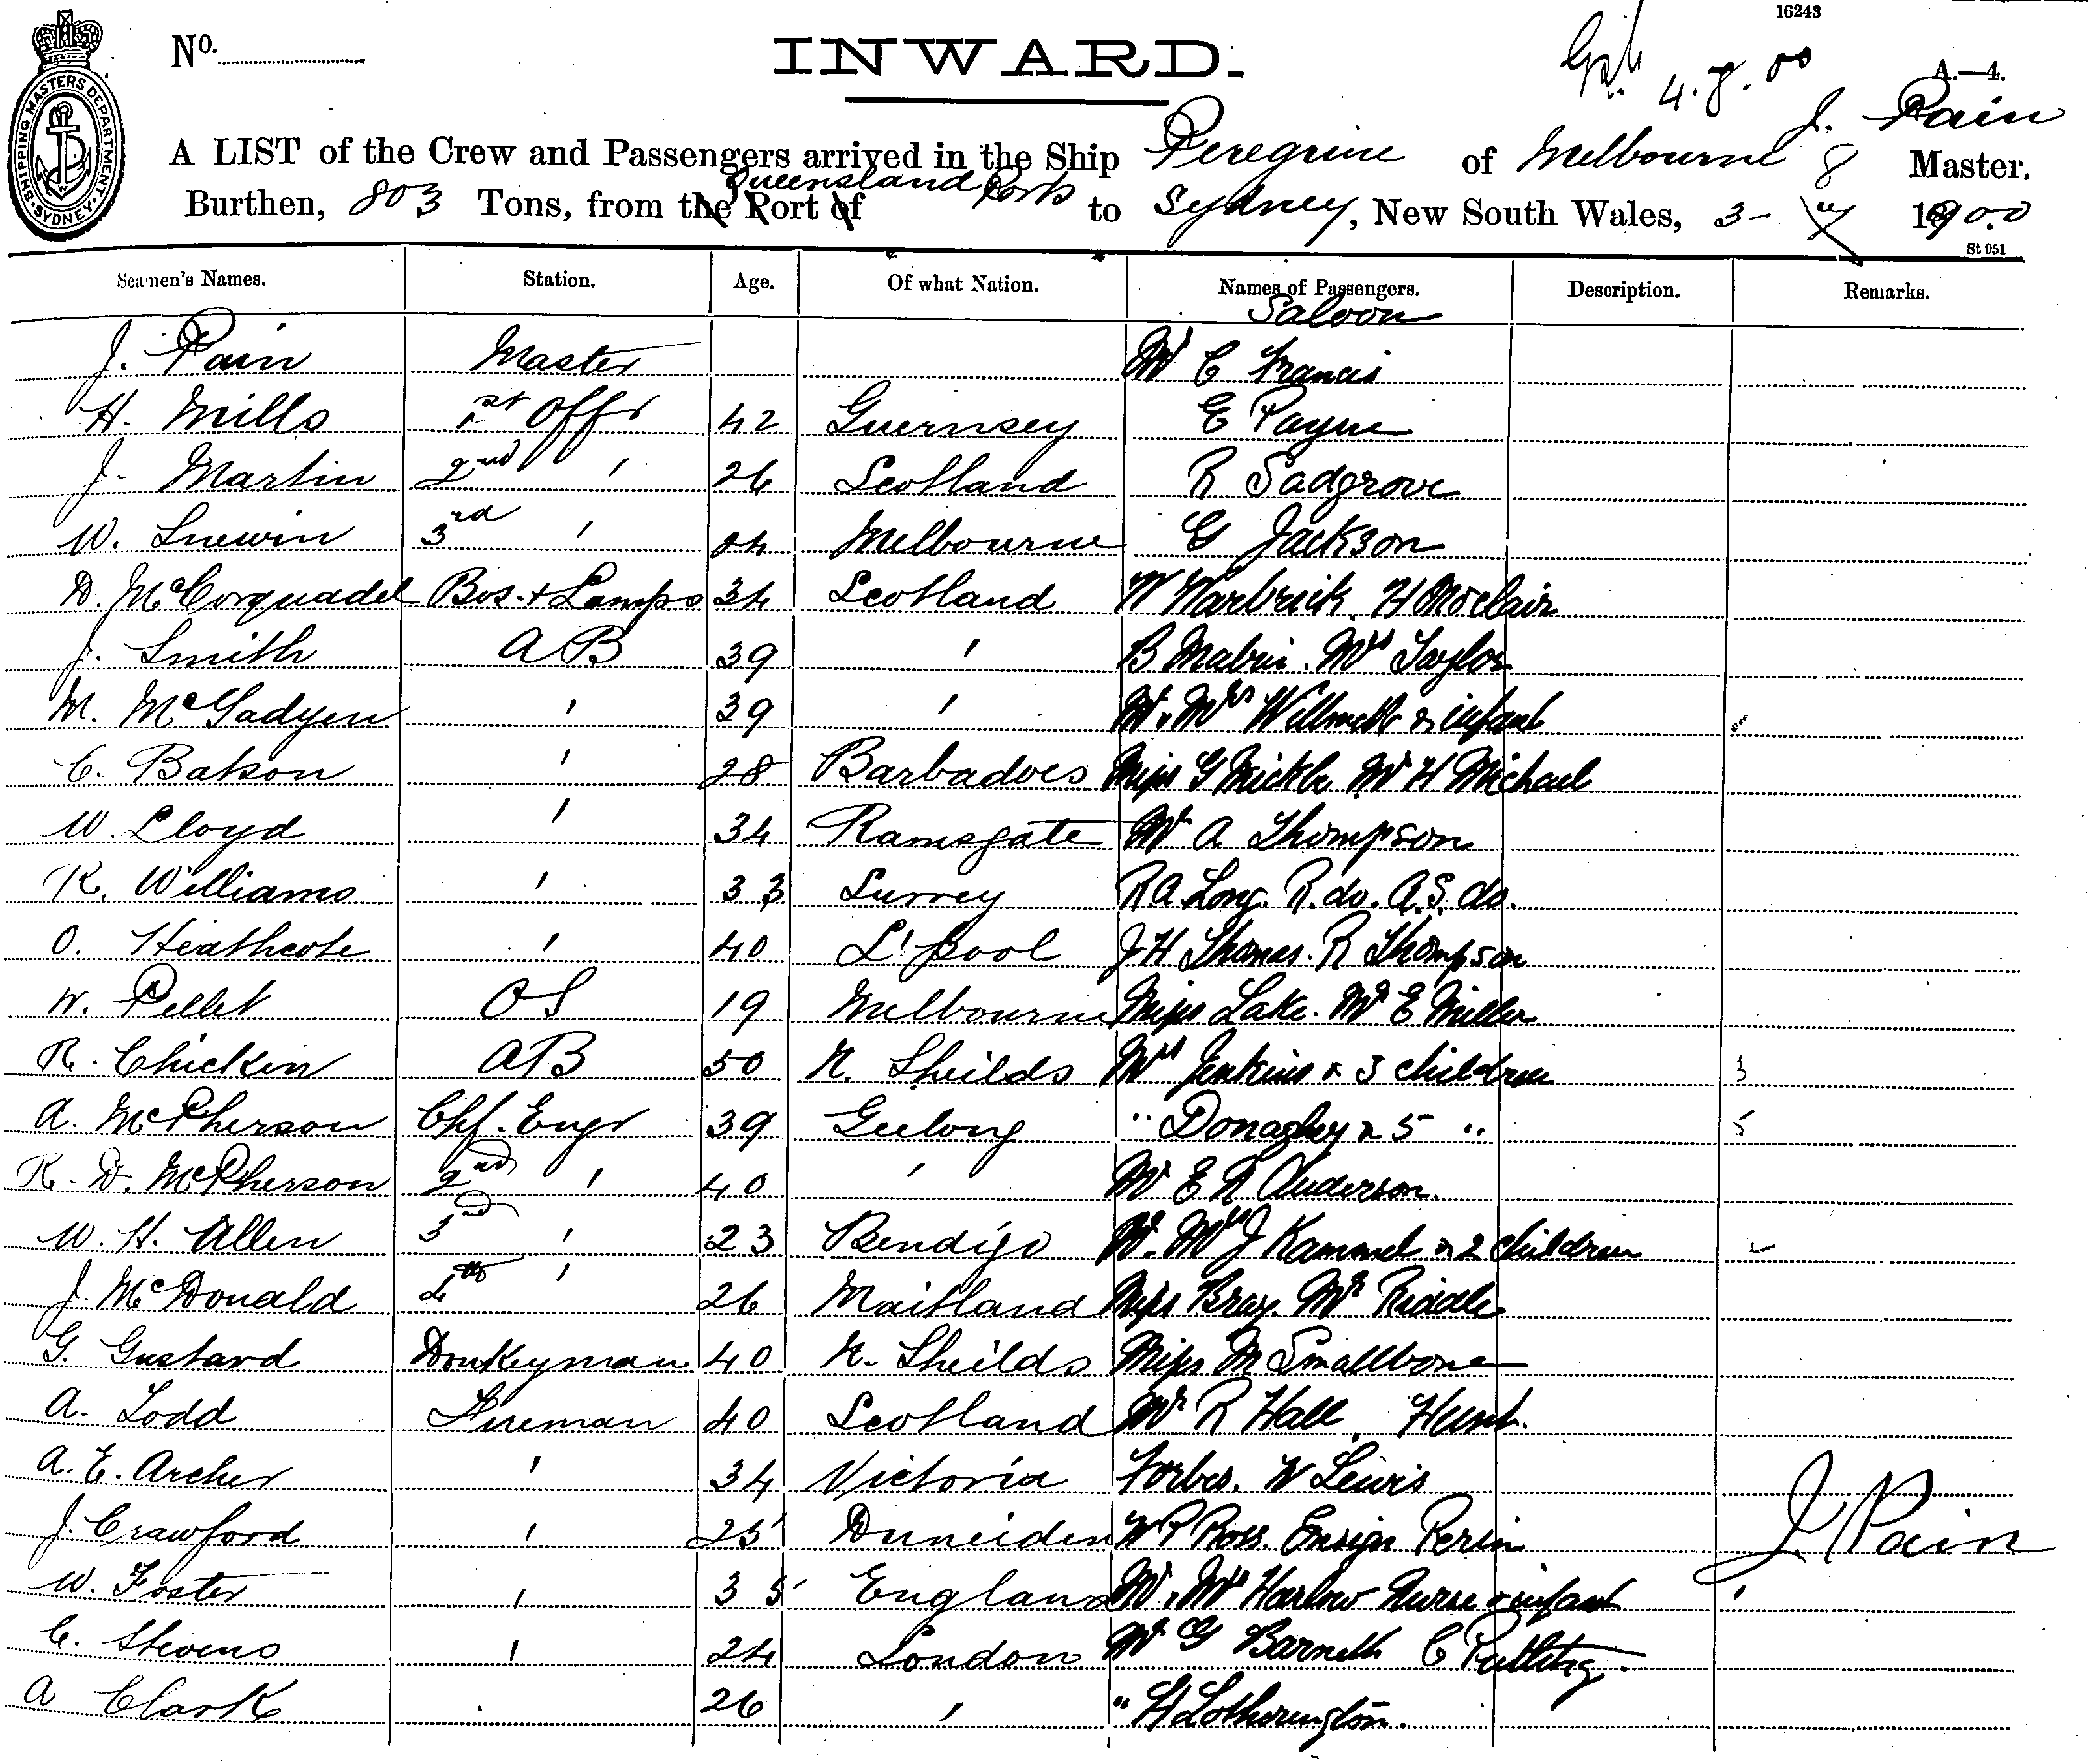 16243
No.
INWARD.
4.8.00
A.—4.
SHIPPING MASTERS DEPARTMENT SYDNEY
J. Pain
A LIST of the Crew and Passengers arrived in the Ship Peregrine of Melbourne Master.
Queensland Ports
Burthen, 803 Tons, from the Port of to Sydney, New South Wales, 3- 8 1900
St 051
Seamen's Names. Station. Age. Of what Nation. Names of Passengers. Description. Remarks.
Saloon
J. Pain Master Mr C Francis
H. Mills 1st Offr 42 Guernsey E Payne
J. Martin 2nd ' 26 Scotland R Sadgrove
W. Snewin 3rd ' 24 Melbourne G Jackson
D. McCorquadel Bos. & Lamps 34 Scotland W Warbrick. H
J. Smith AB 39 ' B Mabin. Mrs Taylor
M. McGadyen ' 39 ' Mr. Mrs Willmett & infant
C. Batson ' 28 Barbadoes Miss G Mickle Mr H Michael
W. Lloyd ' 34 Ramsgate Mr A Thompson
R. Williams ' 33 Surrey R A Long. R. do. A.S. do.
O. Heathcote ' 40 L'pool J H Thomas. R Thompson
W. Pellet OS 19 Melbourne Miss Lake. Mr E Miller
R. Chickin AB 50 N. Sheilds Mrs Jenkins & 3 children 3
A. McPherson Chf. Engr 39 Geelong " Donaghey & 5 " 5
R. D. McPherson 2nd ' 40 ' Mr E R Anderson.
W. H. Allen 3rd ' 23 Bendigo Mr. Mrs J Kammel & 2 children 2
J. McDonald 4th ' 26 Maitland Miss Bray. Mr Riddle
G. Gustard Donkeyman 40 N. Sheilds Miss M Smallbone
A. Todd Fireman 40 Scotland Mr R Hall. Hunt.
A. E. Archer ' 34 Victoria Forbes. W Lewis
J. Crawford ' 25 Duneiden W P Ross. Ensign Perin
J. Pain
W. Foster ' 35 England Mr. Mrs Harlow Nurse & infant '
C. Stevens ' 24 London Mr G Barnett C
A Clark 26 ' " H Lotherington.